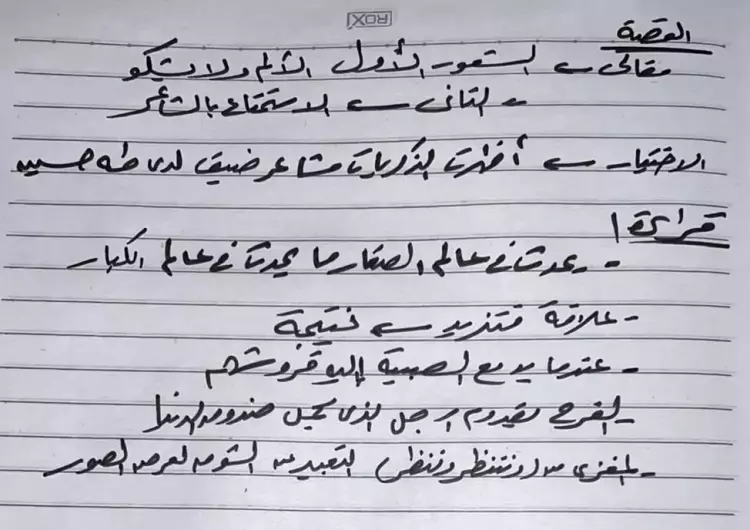 XOR
القصة
مقالى ← الشعور الأول الألم ولا يشكو
- الثانى ← الاستمتاع بالشاعر
الاختيار ← أظهرت الذكريات مشاعر ضيق لدى طه حسين
قراءة ١
- يحدث في عالم الصغار ما يحدث في عالم الكبار
- علاقة فتزيد ← نتيجة
- عندما يدفع الصبية إليه قروشهم
- الفرح بقدوم الرجل الذى يحمل صندوق الدنيا
- المغزى من (وننتظر وننتظر) التعبير عن الشوق لعرض الصور